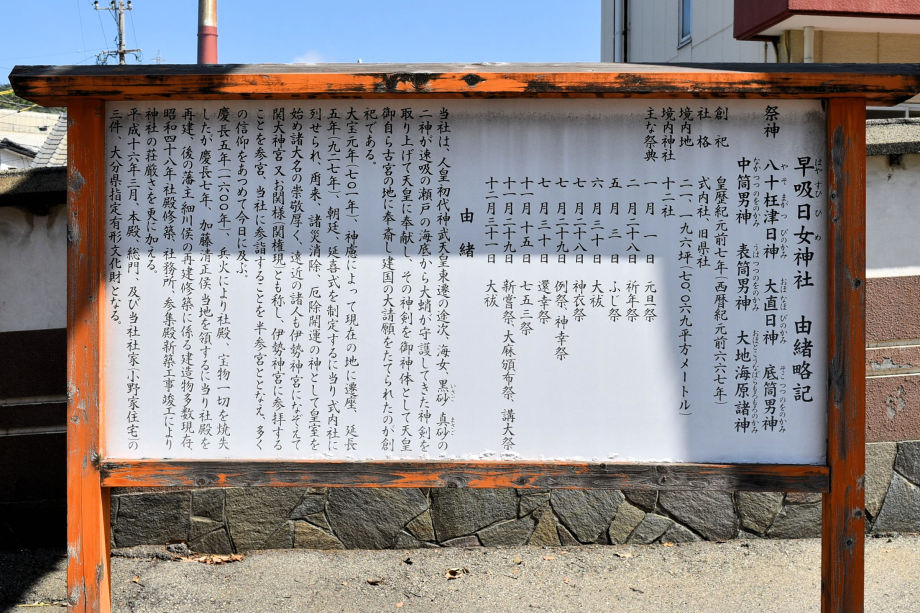 早吸日女神社　由緒略記
はやすひひめ
祭神　八十枉津日神　大直日神　底筒男神
やそまがつひのかみ　おおなおびのかみ　そこつつのをのかみ
中筒男神　表筒男神　大地海原諸神
なかつつのをのかみ　うはつつのをのかみ
創祀　皇歴紀元前七年（西暦紀元前六六七年）
社格　式内社・旧県社
境内地　二一、一九六坪（七〇〇六九平方メートル）
境内神社　十二社
主な祭典　一月一日　元旦祭
二月二十八日　祈年祭
五月五日　ふじ祭
六月三十日　大祓
七月二十八日　神衣祭
七月二十九日　例祭・神幸祭
七月三十一日　還幸祭
十一月十五日　七五三祭
十一月二十九日　新嘗祭・大麻頒布祭・講大祭
十二月三十一日　大祓
由緒
当社は、人皇初代神武天皇東遷の途次、海女・黒砂・真砂の
いさご　まさご
二神が速吸の瀬戸の海底から大蛸が守護してきた神剣を
取り上げて天皇に奉献し、その神剣を御神体として天皇
御自ら古宮の地に奉斎し建国の大請願をたてられたのが創
祀である。
大宝元年（七〇一年）、神慮によって現在の地に遷座、延長
五年（九二七年）、朝廷、延喜式を制定するに当り式内社に
列せられ、爾来、諸災消除、厄除開運の神として皇室を
始め諸大名の崇敬厚く、遠近の諸人も伊勢神宮になぞえて
関大神宮又お関様（関権現）とも称し、伊勢神宮に参拝する
ことを参宮、当社に参詣することを半参宮ととなえ、多く
の信仰をあつめて今日に及ぶ。
慶長五年（一六〇〇年）、兵火により社殿、宝物一切を焼失
したが、慶長七年、加藤清正侯当地を領するに当り社殿を
再建、後の藩主細川侯の再建修築に係る建造物多数現存、
昭和四十八年社殿修築、社務所、参集殿新築工事竣工により
神社の荘厳さを更に加える。
平成十六年三月、本殿、総門、及び当社社家（小野家住宅）の
三件、大分県指定有形文化財となる。